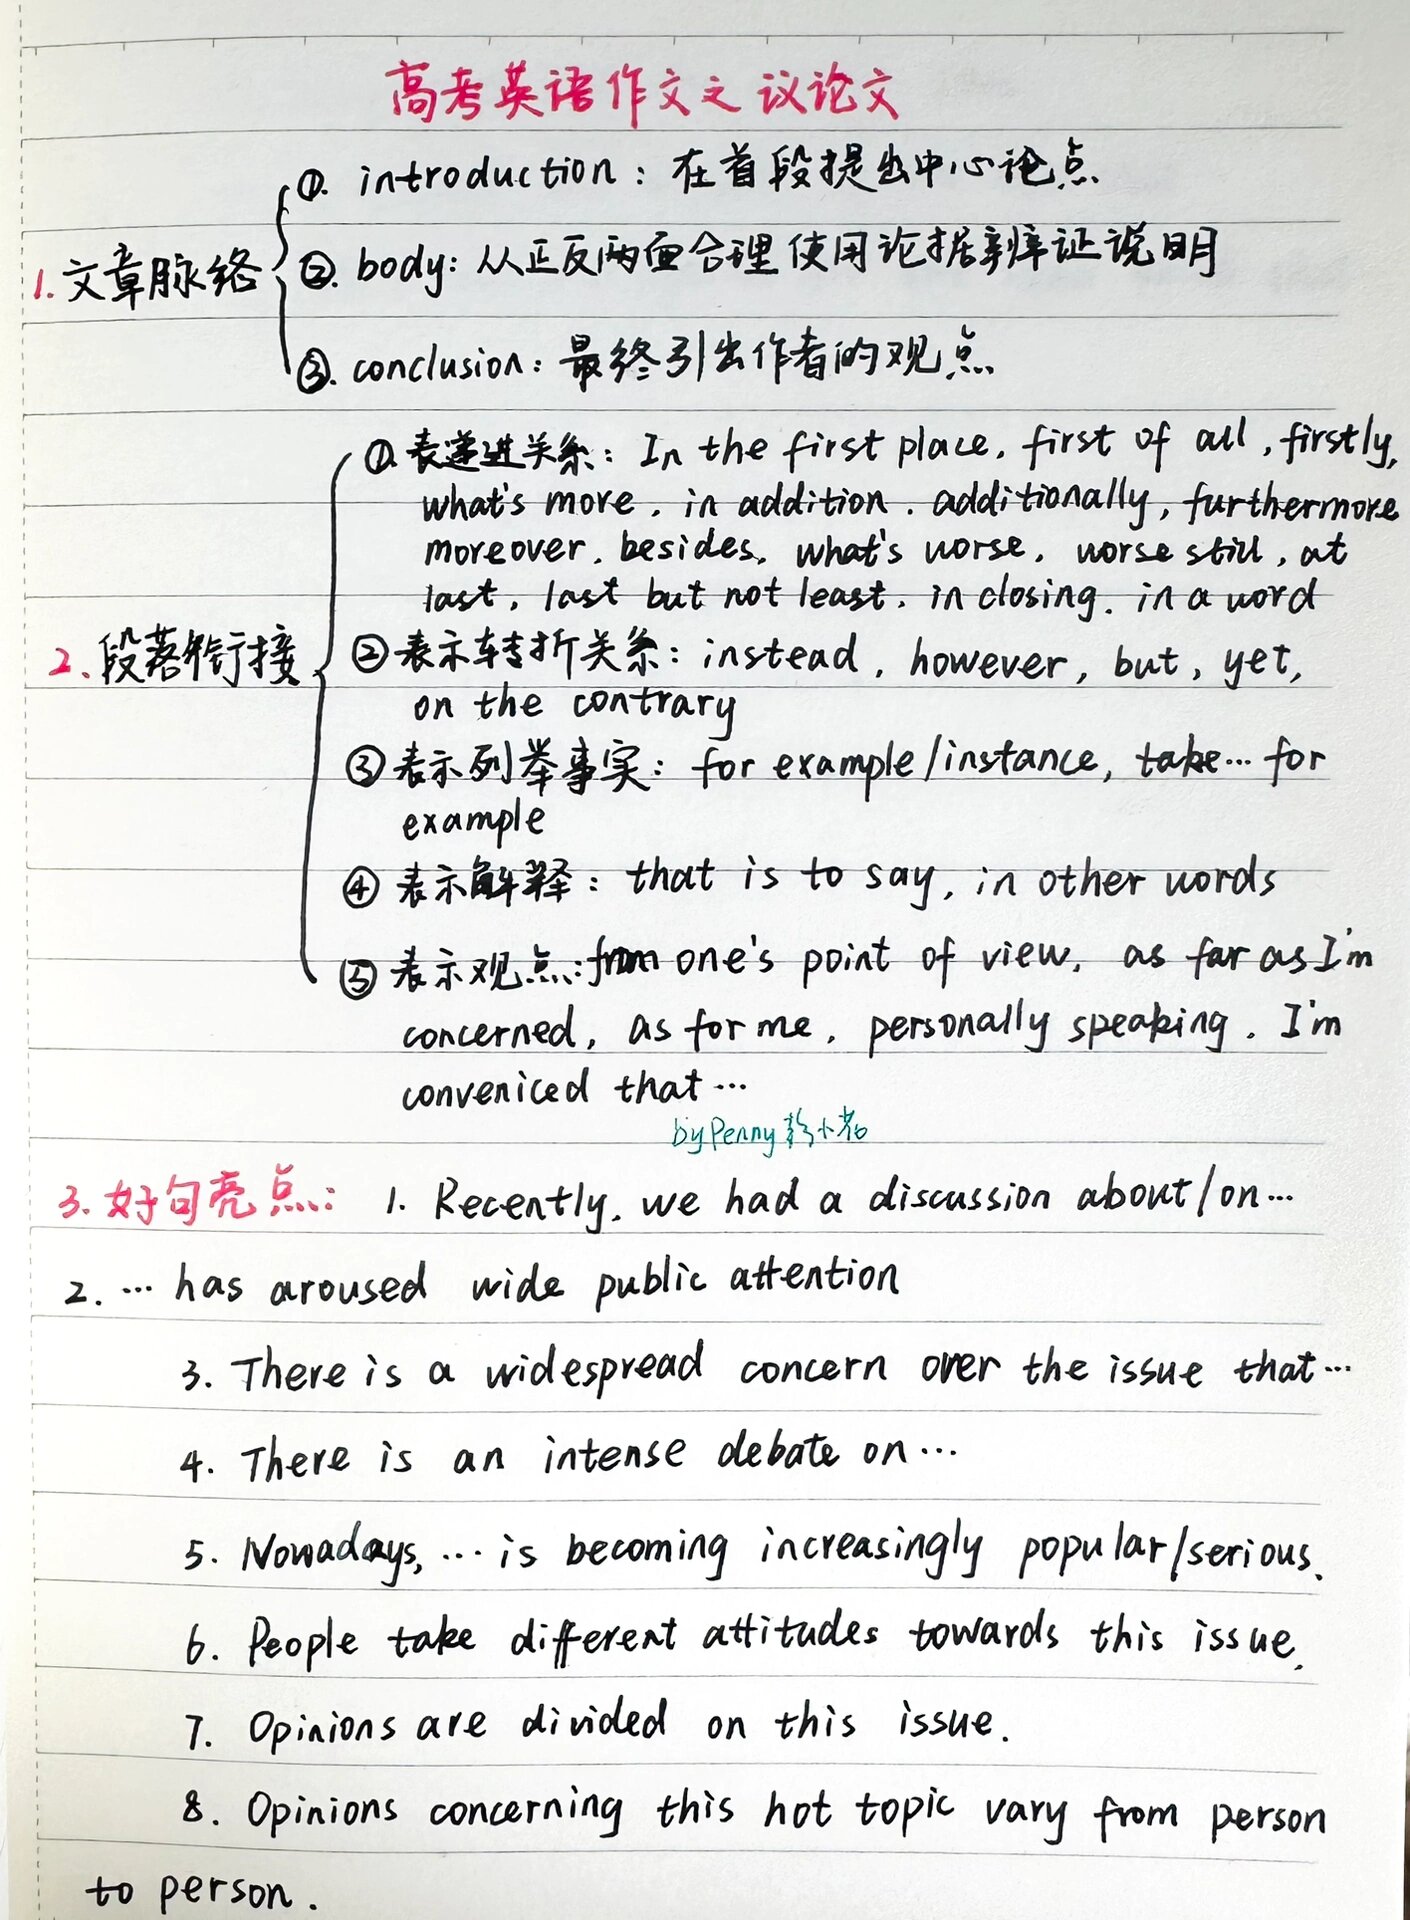 高考英语作文之议论文
①. introduction: 在首段提出中心论点
1. 文章脉络
②. body: 从正反两面合理使用论据辨证说明
③. conclusion: 最终引出作者的观点
①. 表递进关系: In the first place, first of all, firstly,
what's more, in addition, additionally, furthermore
moreover, besides, what's worse, worse still, at
last, last but not least, in closing, in a word
2. 段落衔接
② 表示转折关系: instead, however, but, yet,
on the contrary
③ 表示列举事实: for example/instance, take… for
example
④ 表示解释: that is to say, in other words
⑤ 表示观点: from one's point of view, as far as I'm
concerned, as for me, personally speaking, I'm
conveniced that…
by Penny
3. 好句亮点: 1. Recently, we had a discussion about/on…
2. … has aroused wide public attention
3. There is a widespread concern over the issue that…
4. There is an intense debate on…
5. Nowadays, … is becoming increasingly popular/serious.
6. People take different attitudes towards this issue.
7. Opinions are divided on this issue.
8. Opinions concerning this hot topic vary from person
to person.